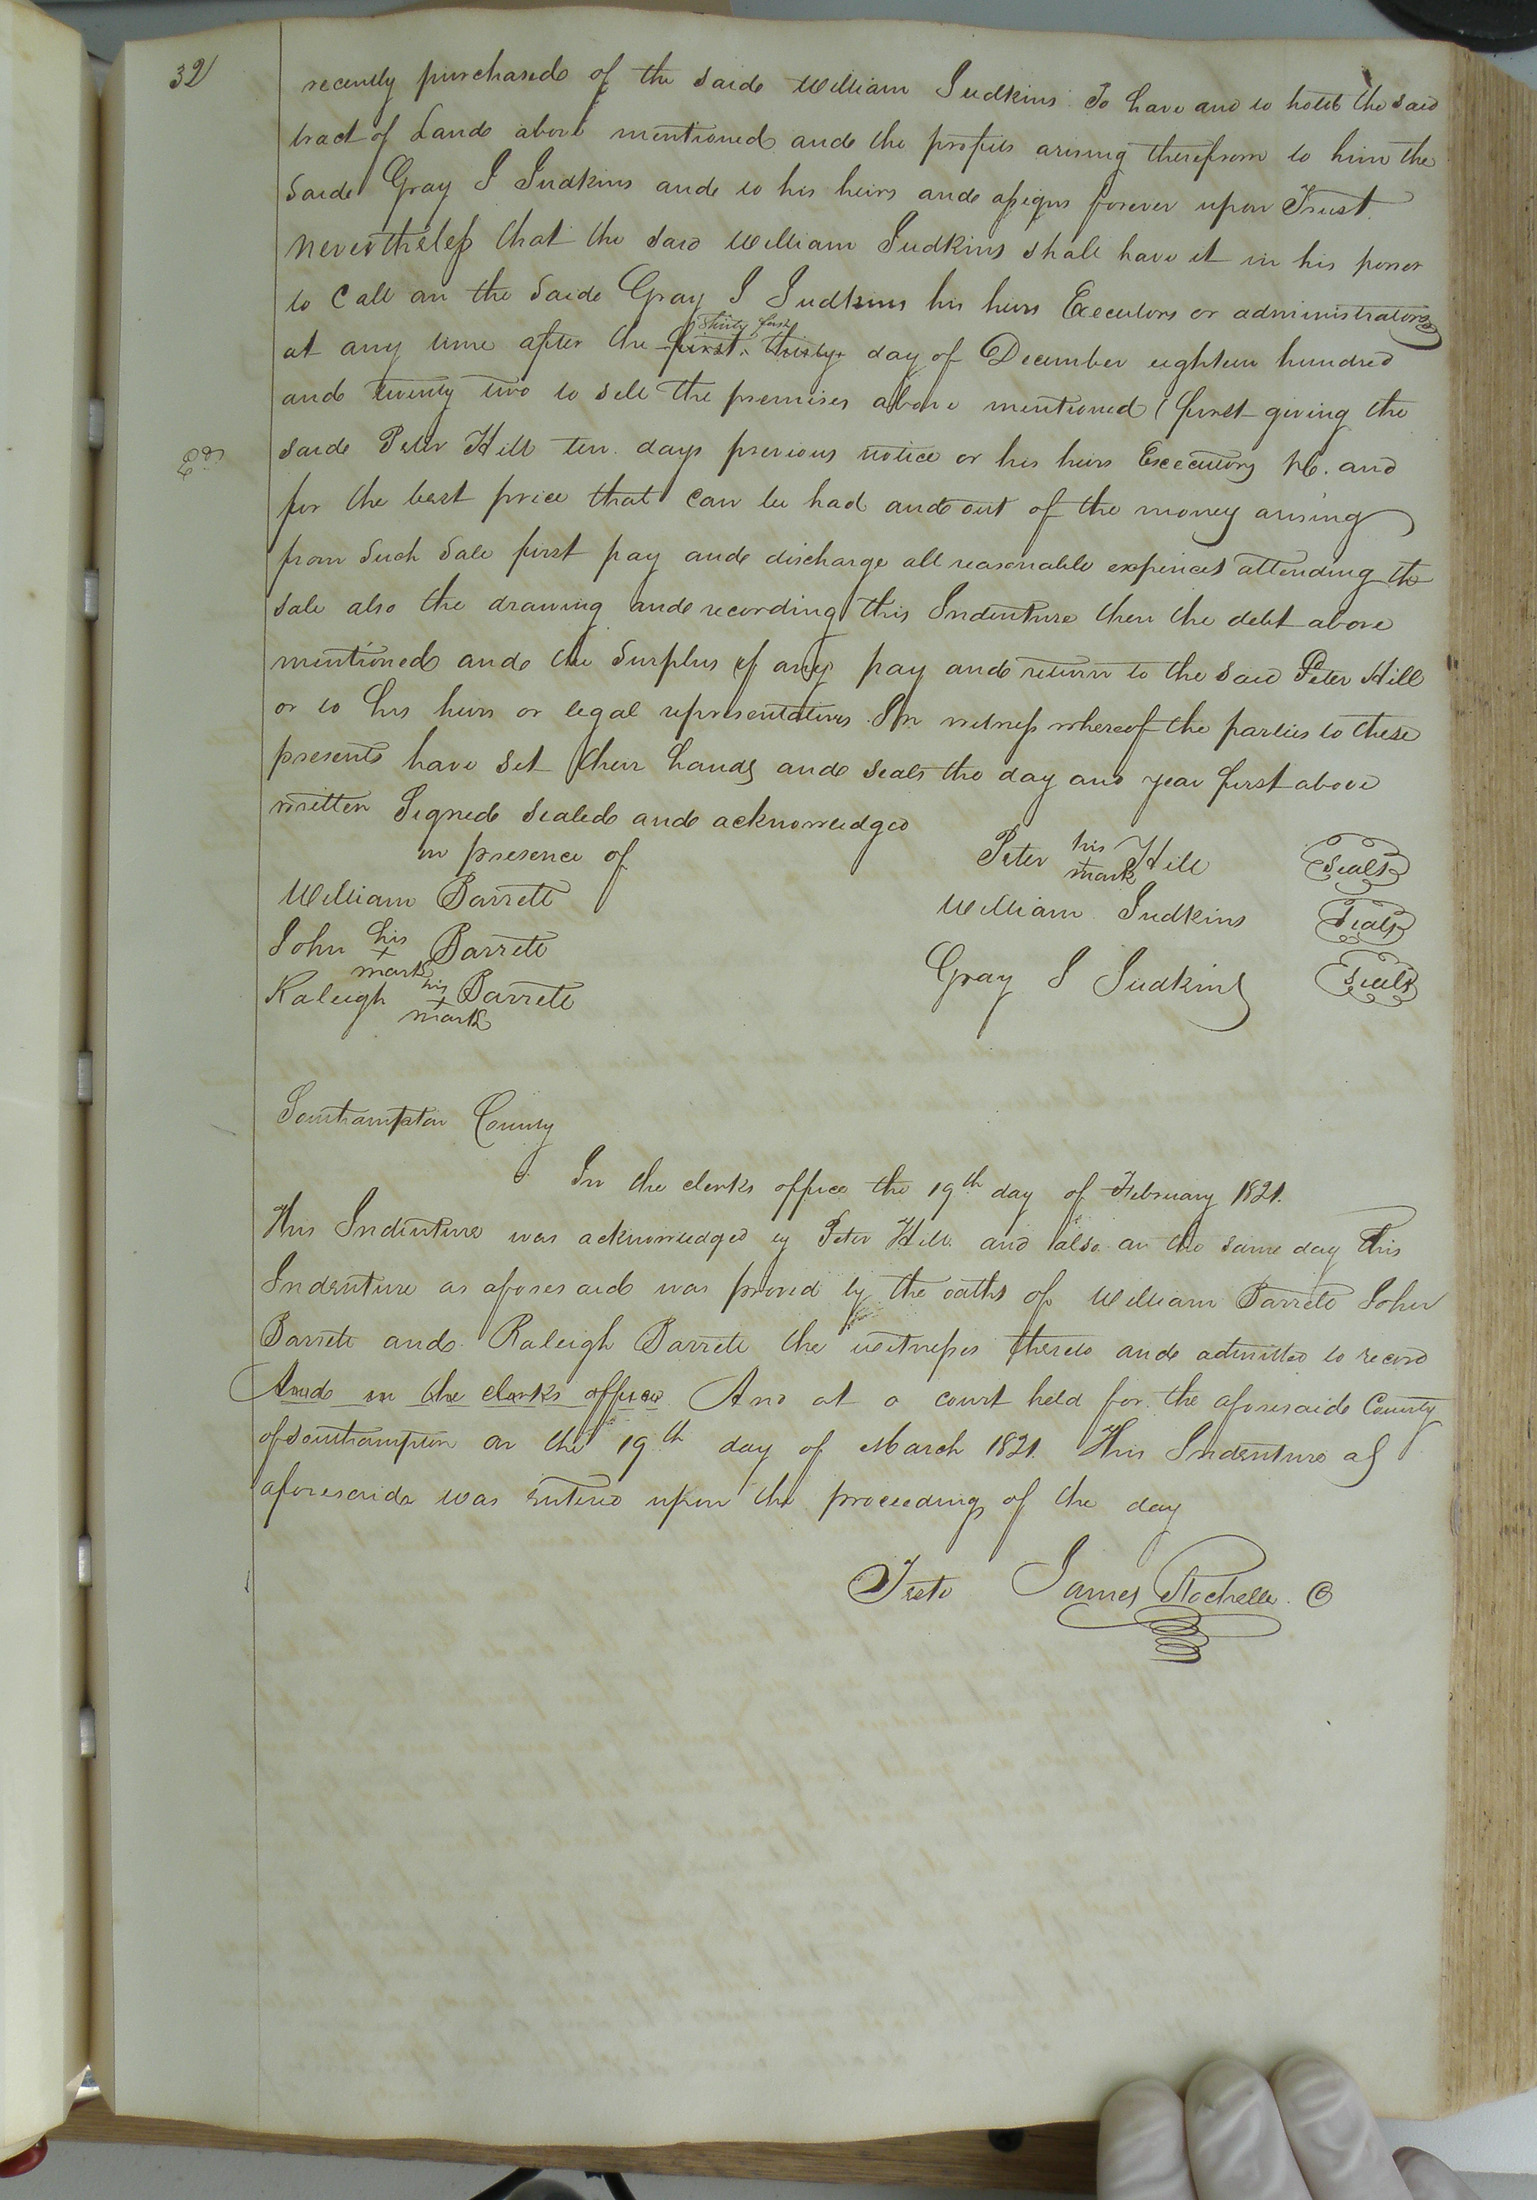 32
recently purchased of the said William Judkins To have and to hold the said
tract of Land above mentioned and the profits arising therefrom to him the
said Gray J Judkins and to his heirs and assigns forever upon Trust
nevertheless that the said William Judkins shall have it in his power
to Call on the said Gray J Judkins his heirs Executors or administrators
thirty first
at any time after the first thirty day of December eighteen hundred
and twenty two to sell the premises above mentioned (first giving the
said Peter Hill ten days previous notice or his heirs Executors &c. and
for the best price that can be had and out of the money arising
from Such Sale first pay and discharge all reasonable expences attending the
sale also the drawing and recording this Indenture then the debt above
mentioned and the Surplus if any pay and return to the said Peter Hill
or to his heirs or legal representatives In witness whereof the parties to these
presents have set their hands and seals the day and year first above
written Signed sealed and acknowledged
in presence of
William Barrett
John his + mark Barrett
Raleigh his + mark Barrett
Peter his + mark Hill Seal
William Judkins Seal
Gray J Judkins Seal
Southampton County
In the clerks office the 19th day of February 1821.
This Indenture was acknowledged by Peter Hill and also on the same day this
Indenture as aforesaid was proved by the oaths of William Barrett John
Barrett and Raleigh Barrett the witnesses thereto and admitted to record
And in the clerks office And at a court held for the aforesaid County
of Southampton on the 19th day of March 1821. This Indenture as
aforesaid was entered upon the proceedings of the day
Teste James Rochelle C